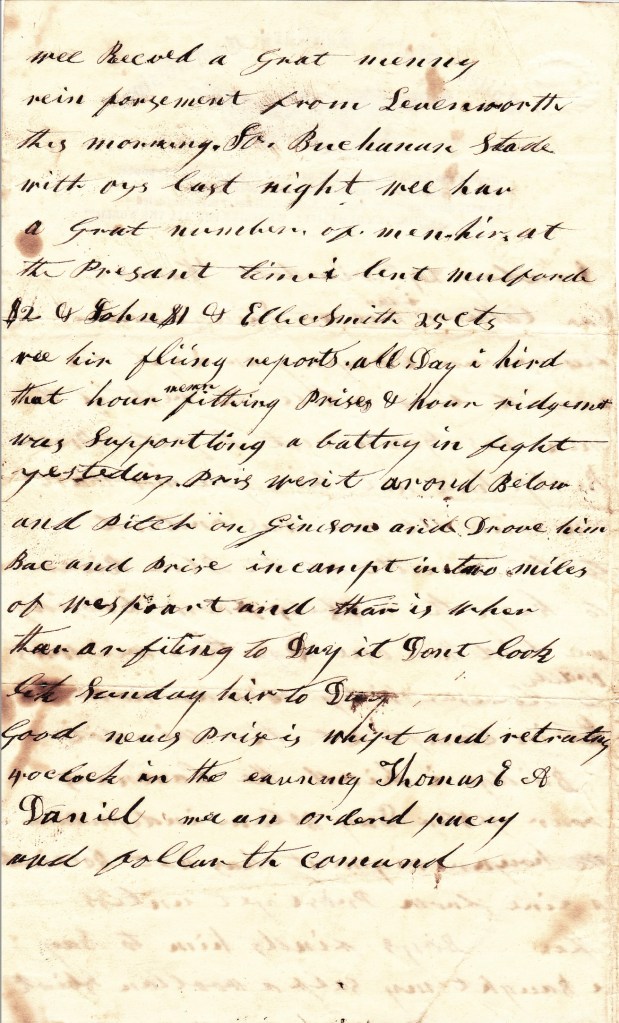 wee Recevd a Grat menny
rein forsement from Levenworth
this morning. Jo. Buchanan Stade
with oys last night wee hav
a Grat number of men hir at
the Presant time i lent mulford
$2 & John $1 & Ellic Smith 25 cts
wee hir fliing reports all Day i hird
that hour menn fitthing Prises & hour ridgemt
was Supportting a battry in fight
yesteday. Pris wenit arond Below
and Pitch on Ginison and Drove him
Bac and Prise incampt in two miles
of wesport and than is wher
thar ar fiting to Day it Dont look
lik Sunday hir to Day
Good news Prise is whipt and retrating
4 oclock in the evning Thomas E A
Daniel we an orderd
and follar th comand